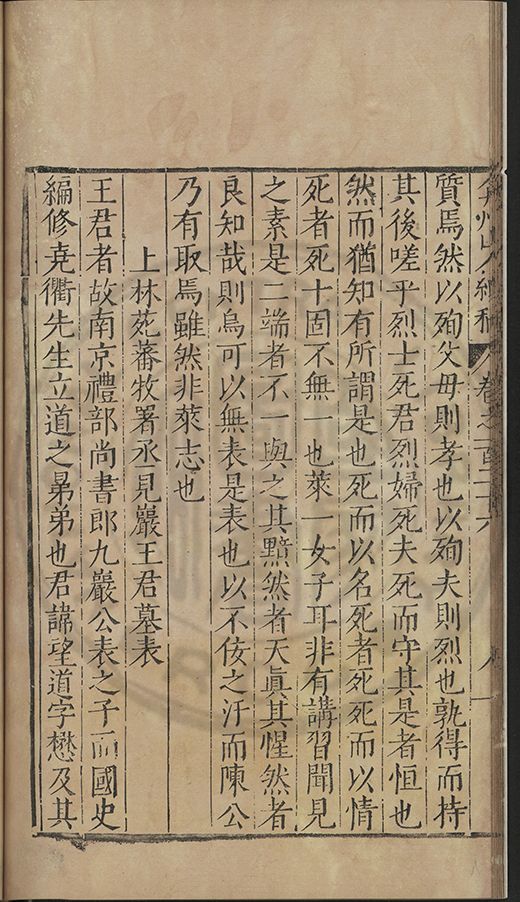 弇州山人續稿 卷之一百二十六
質焉然以殉父母則孝也以殉夫則烈也孰得而持
其後嗟乎烈士死君烈婦死夫死而守其是者恒也
然而猶知有所謂是也死而以名死者死死而以情
死者死十固不無一也萊一女子耳非有講習聞見
之素是二端者不一與之其黯然者天眞其惺然者
良知哉則烏可以無表是表也以不佞之汙而陳公
乃有取焉雖然非萊志也
上林苑蕃牧署丞見巖王君墓表
王君者故南京禮部尚書郎九巖公表之子而國史
編修堯衢先生立道之晜弟也君諱望道字懋及其